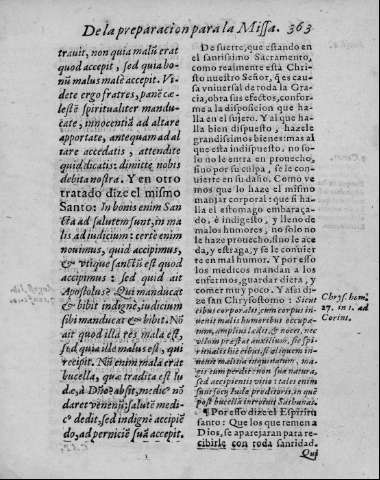 De la preparacion para la Missa. 363
trauit, non quia malũ erat
quod accepit, sed quia bo-
num malus malè accepit. Vi-
dete ergo fratres, panẽ cæ-
lestẽ spiritualiter mandu-
cate, innocentiã ad altare
apportate, antequam ad al
tare accedatis, attendite
quid dicatis: dimitte nobis
debita nostra. Y en otro
tratado dize el mismo
Santo: In bonis enim San
cta ad salutem sunt, in ma
lis ad iudicium: certè enim
nouimus, quid accipimus,
& vtique sanctũ est quod
accipimus: sed quid ait
Apostolus? Qui manducat
& bibit indignè, iudicium
sibi manducat & bibit. Nõ
ait quod illa res mala est,
sed quia ille malus est, qui
recipit. Nũ enim mala erat
bucella, quæ tradita est Iu
dæ, à Dño? absit, medic⁹ nõ
daret venenũ; salutẽ medi-
c⁹ dedit, sed indignè accipiẽ
do, ad perniciẽ suã accepit.
De suerte, que estando en
el santissimo Sacramento,
como realmente està Chri-
sto nuestro Señor, q̃ es cau-
sa vniuersal de toda la Gra-
cia, obra sus efectos, confor-
me a la disposicion que ha-
lla en el sujeto. Y al que ha-
lla bien dispuesto, hazele
grandissimos bienes: mas al
que esta indispuesto, no so-
lo no le entra en prouecho,
sino por su culpa, se le con-
uierte en su daño. Como ve
mos que lo haze el mismo
manjar corporal: que si ha-
lla el estomago embaraça-
do, è indigesto, y lleno de
malos humores, no solo no
le haze prouecho, sino le ace
da, y estraga, y se le conuier
te en mal humor. Y por esso
los medicos mandan a los
enfermos, guardar dieta, y
comer muy poco. Y assi di-
ze san Chrysostomo: Sicut
cibus corporalis, cum corpus in-
uenit malis humoribus occupa-
tum, amplius lædit, & nocet, nec
vllum præstat auxilium, sic spi-
ritualis iste cibus, si aliquem in-
uenit malitia inquinatum, ma-
gis eum perdit: non sua natura,
sed accipientis vitio: tales enim
sunt
post bucellã introiuit Sathanas.
¶ Por esso dize el Espiritu
santo: Que los que temen a
Dios, se aparejaran para re-
cibirle con toda santidad.
Qui
Chrys. hom.
27. in 1. ad
Corint.